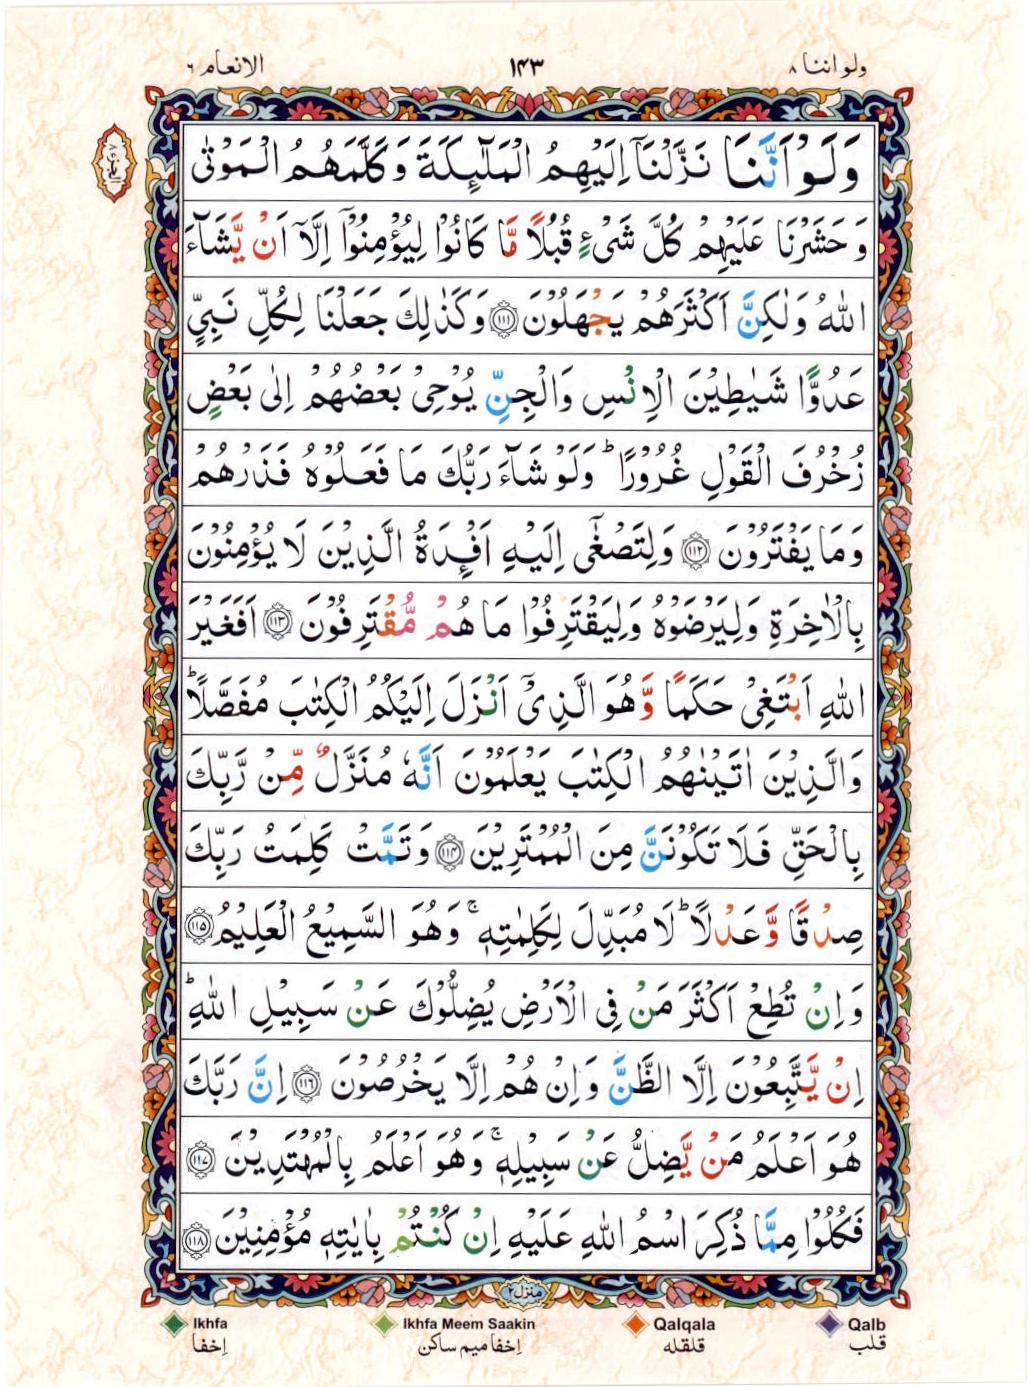 ولواننا ٨
١٤٣
الانعام ٦
الجزء ٨
وَلَوْ اَنَّنَا نَزَّلْنَاۤ اِلَيْهِمُ الْمَلٰٓئِكَةَ وَكَلَّمَهُمُ الْمَوْتٰى
وَحَشَرْنَا عَلَيْهِمْ كُلَّ شَىْءٍ قُبُلًا مَّا كَانُوْا لِيُؤْمِنُوْۤا اِلَّاۤ اَنْ يَّشَآءَ
اللّٰهُ وَلٰكِنَّ اَكْثَرَهُمْ يَجْهَلُوْنَ ﴿١١١﴾ وَكَذٰلِكَ جَعَلْنَا لِكُلِّ نَبِيٍّ
عَدُوًّا شَيٰطِيْنَ الْاِنْسِ وَالْجِنِّ يُوْحِىْ بَعْضُهُمْ اِلٰى بَعْضٍ
زُخْرُفَ الْقَوْلِ غُرُوْرًا ؕ وَلَوْ شَآءَ رَبُّكَ مَا فَعَلُوْهُ فَذَرْهُمْ
وَمَا يَفْتَرُوْنَ ﴿١١٢﴾ وَلِتَصْغٰۤى اِلَيْهِ اَفْئِدَةُ الَّذِيْنَ لَا يُؤْمِنُوْنَ
بِالْاٰخِرَةِ وَلِيَرْضَوْهُ وَلِيَقْتَرِفُوْا مَا هُمْ مُّقْتَرِفُوْنَ ﴿١١٣﴾ اَفَغَيْرَ
اللّٰهِ اَبْتَغِىْ حَكَمًا وَّهُوَ الَّذِىْۤ اَنْزَلَ اِلَيْكُمُ الْكِتٰبَ مُفَصَّلًا ؕ
وَالَّذِيْنَ اٰتَيْنٰهُمُ الْكِتٰبَ يَعْلَمُوْنَ اَنَّهٗ مُنَزَّلٌ مِّنْ رَّبِّكَ
بِالْحَقِّ فَلَا تَكُوْنَنَّ مِنَ الْمُمْتَرِيْنَ ﴿١١٤﴾ وَتَمَّتْ كَلِمَتُ رَبِّكَ
صِدْقًا وَّعَدْلًا ؕ لَا مُبَدِّلَ لِكَلِمٰتِهٖ ۚ وَهُوَ السَّمِيْعُ الْعَلِيْمُ ﴿١١٥﴾
وَاِنْ تُطِعْ اَكْثَرَ مَنْ فِى الْاَرْضِ يُضِلُّوْكَ عَنْ سَبِيْلِ اللّٰهِ ؕ
اِنْ يَّتَّبِعُوْنَ اِلَّا الظَّنَّ وَاِنْ هُمْ اِلَّا يَخْرُصُوْنَ ﴿١١٦﴾ اِنَّ رَبَّكَ
هُوَ اَعْلَمُ مَنْ يَّضِلُّ عَنْ سَبِيْلِهٖ ۚ وَهُوَ اَعْلَمُ بِالْمُهْتَدِيْنَ ﴿١١٧﴾
فَكُلُوْا مِمَّا ذُكِرَ اسْمُ اللّٰهِ عَلَيْهِ اِنْ كُنْتُمْ بِاٰيٰتِهٖ مُؤْمِنِيْنَ ﴿١١٨﴾
منزل ٢
Ikhfa Ikhfa Meem Saakin Qalqala Qalb
اِخفا اِخفا میم ساکن قلقله قلب